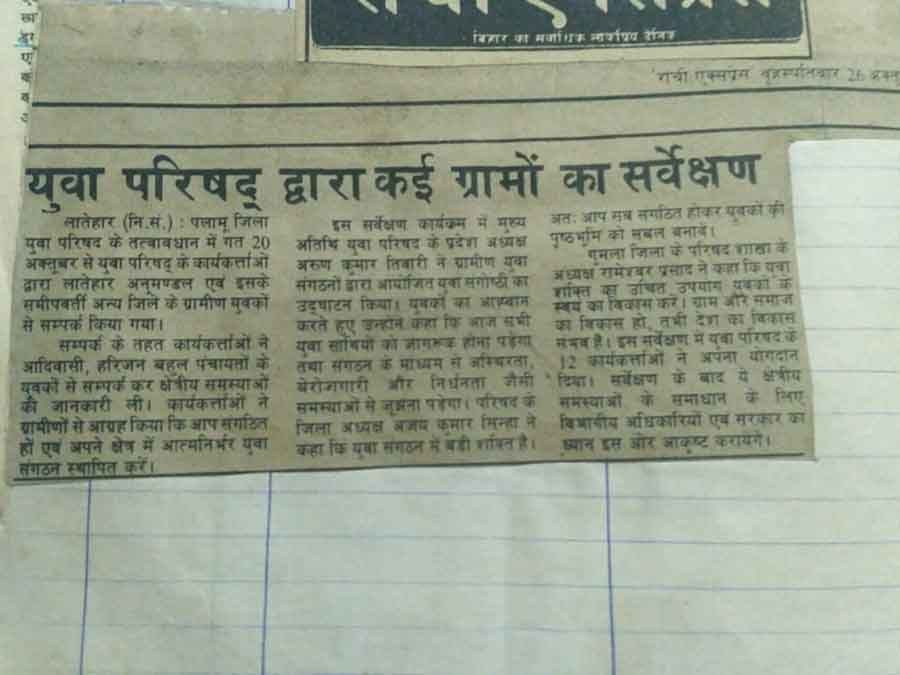 बिहार का सर्वाधिक लोकप्रिय दैनिक
रांची एक्सप्रेस बृहस्पतिवार 26 अक्तू
युवा परिषद् द्वारा कई ग्रामों का सर्वेक्षण
लातेहार (नि.सं.) : पलामू जिला
युवा परिषद के तत्वावधान में गत 20
अक्तूबर से युवा परिषद् के कार्यकर्त्ताओं
द्वारा लातेहार अनुमण्डल एवं इसके
समीपवर्त्ती अन्य जिले के ग्रामीण युवकों
से सम्पर्क किया गया।
सम्पर्क के तहत कार्यकर्त्ताओं ने
आदिवासी, हरिजन बहुल पंचायतों के
युवकों से सम्पर्क कर क्षेत्रीय समस्याओं
की जानकारी ली। कार्यकर्त्ताओं ने
ग्रामीणों से आग्रह किया कि आप संगठित
हों एवं अपने क्षेत्र में आत्मनिर्भर युवा
संगठन स्थापित करें।
इस सर्वेक्षण कार्यक्रम में मुख्य
अतिथि युवा परिषद के प्रदेश अध्यक्ष
अरुण कुमार तिवारी ने ग्रामीण युवा
संगठनों द्वारा आयोजित युवा संगोष्ठी का
उद्घाटन किया। युवकों का आह्वान
करते हुए उन्होंने कहा कि आज सभी
युवा साथियों को जागरूक होना पड़ेगा
तथा संगठन के माध्यम से अस्थिरता,
बेरोजगारी और निर्धनता जैसी
समस्याओं से जूझना पड़ेगा। परिषद के
जिला अध्यक्ष अजय कुमार सिन्हा ने
कहा कि युवा संगठन में बड़ी शक्ति है।
अतः आप सब संगठित होकर युवकों की
पृष्ठभूमि को सबल बनावें।
गुमला जिला के परिषद शाखा के
अध्यक्ष रामेश्वर प्रसाद ने कहा कि युवा
शक्ति का उचित उपयोग युवकों के
स्वयं का विकास करें। ग्राम और समाज
का विकास हो, तभी देश का विकास
संभव है। इस सर्वेक्षण में युवा परिषद के
12 कार्यकर्त्ताओं ने अपना योगदान
दिया। सर्वेक्षण के बाद ये क्षेत्रीय
समस्याओं के समाधान के लिए
विभागीय अधिकारियों एवं सरकार का
ध्यान इस ओर आकृष्ट करायेंगे।